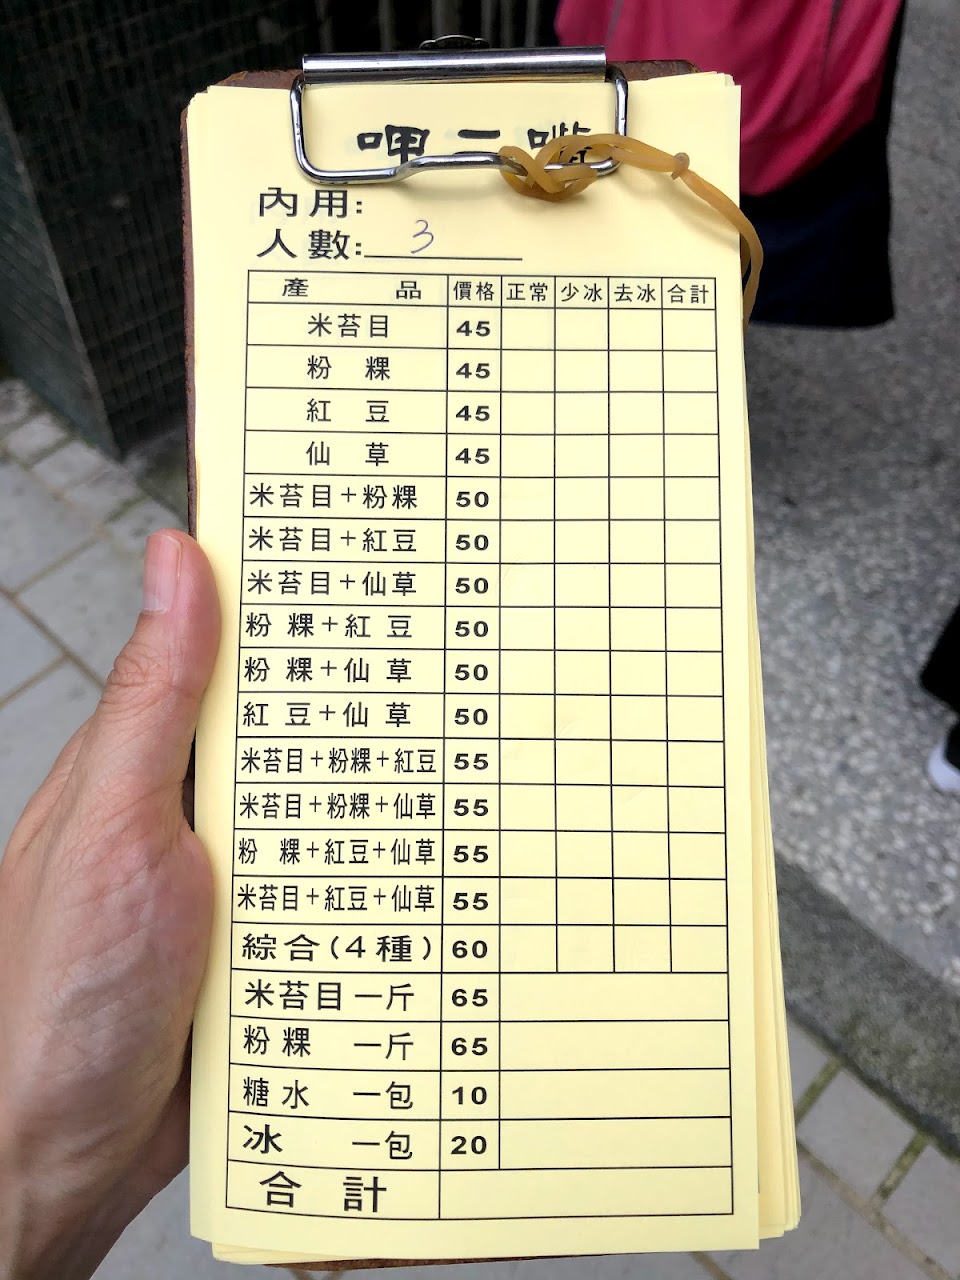 呷二嘴
內用:
人數: 3
產品 價格 正常 少冰 去冰 合計
米苔目 45
粉粿 45
紅豆 45
仙草 45
米苔目+粉粿 50
米苔目+紅豆 50
米苔目+仙草 50
粉粿+紅豆 50
粉粿+仙草 50
紅豆+仙草 50
米苔目+粉粿+紅豆 55
米苔目+粉粿+仙草 55
粉粿+紅豆+仙草 55
米苔目+紅豆+仙草 55
綜合(4種) 60
米苔目一斤 65
粉粿 一斤 65
糖水 一包 10
冰 一包 20
合計